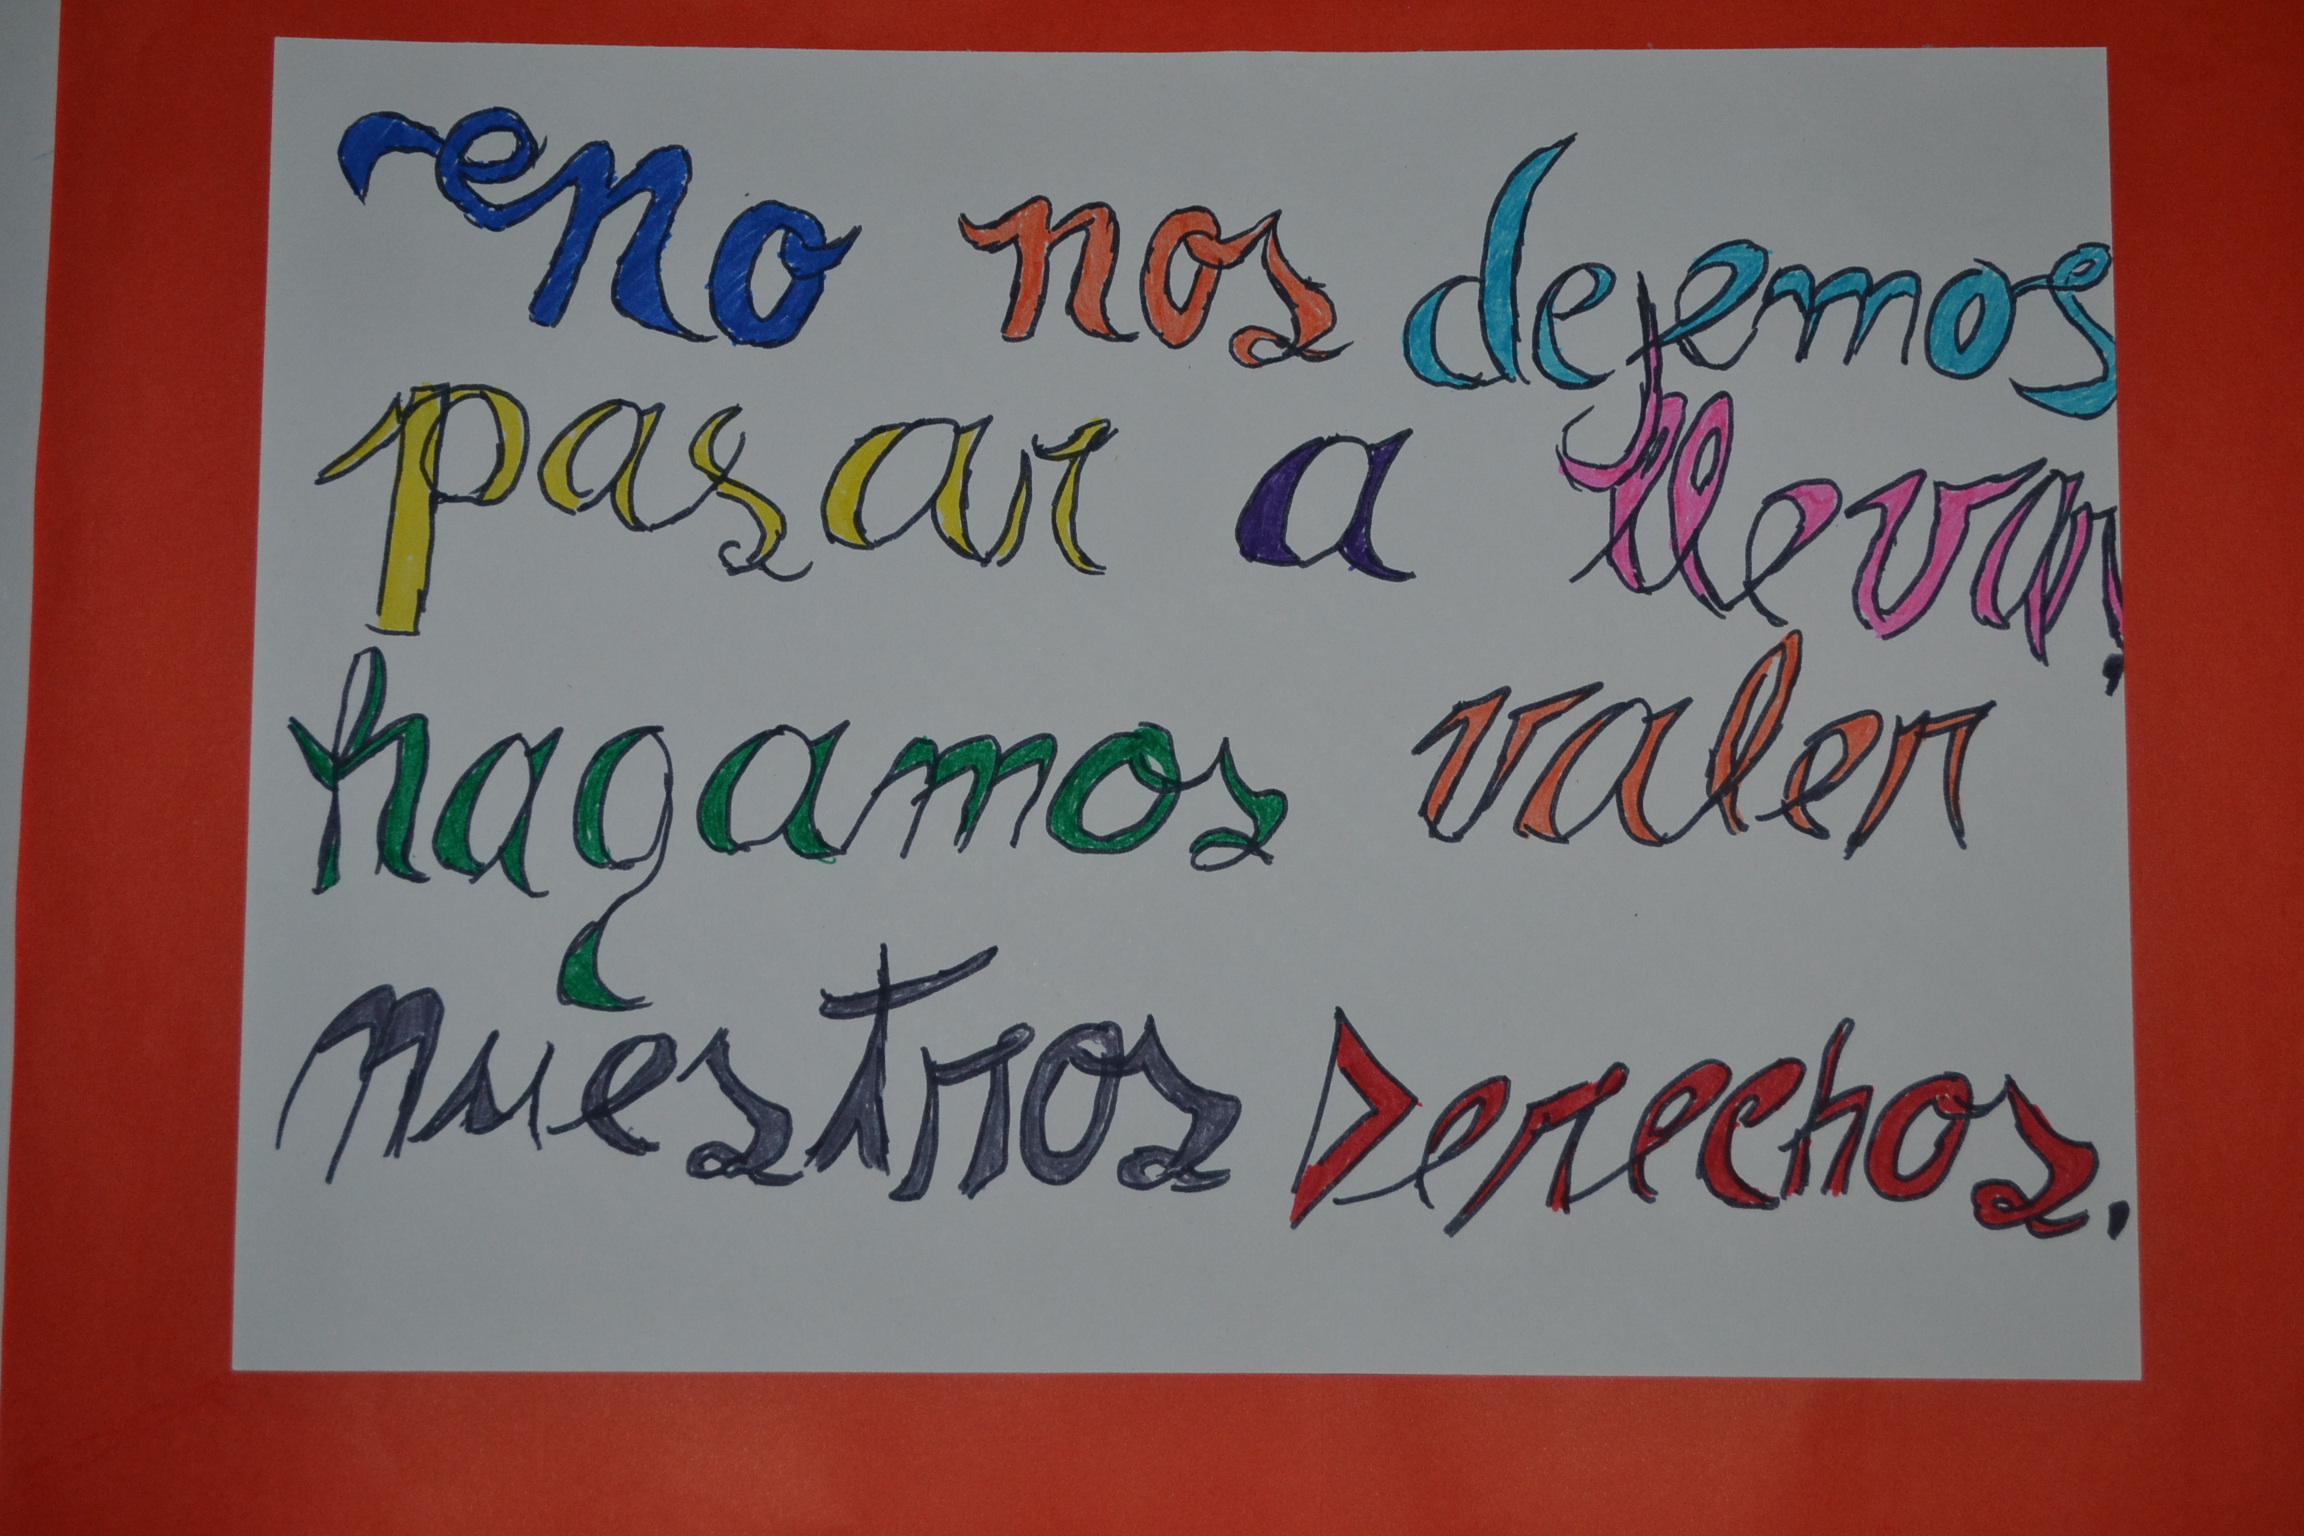 No nos dejemos
pasar a llevar,
hagamos valer
nuestros Derechos.